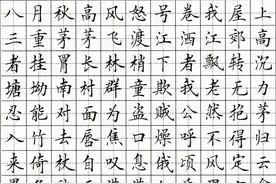 八月秋高风怒号卷我屋上
三重茅茅飞渡江洒江郊高
者挂罥长林梢下者飘转沉
塘坳南村群童欺我老无力
忍能对面为盗贼公然抱茅
入竹去唇焦口燥呼不得归
来倚杖自叹息俄顷风定云